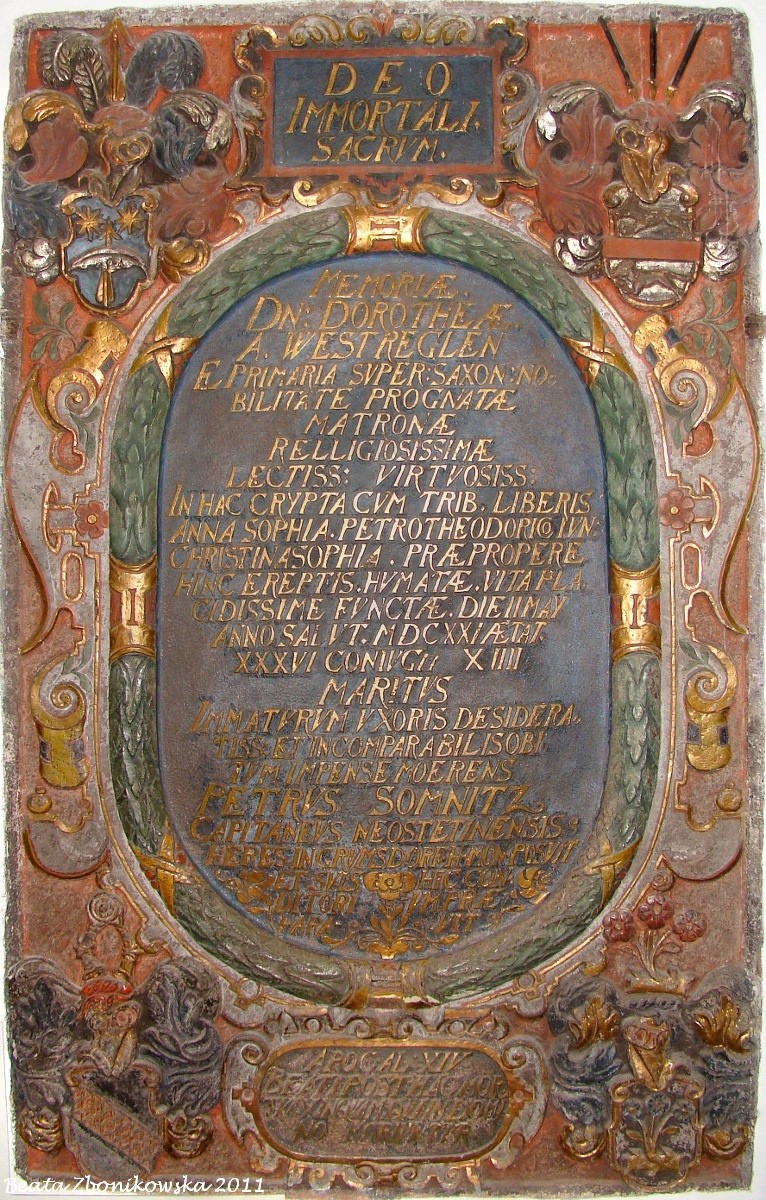 DEO
IMMORTALI.
SACRVM.
MEMORIÆ.
DN: DOROTHEÆ.
A. WESTREGLEN
E PRIMARIA SVPER: SAXON: NO-
BILITATE PROGNATÆ
MATRONÆ
RELLIGIOSISSIMÆ
LECTISS: VIRTVOSISS:
IN HAC CRYPTA CVM TRIB. LIBERIS
ANNA SOPHIA. PETRO THEODORICO IVN:
CHRISTINA SOPHIA. PRÆPROPERE
HINC EREPTIS. HVMATÆ. VITA PLA
CIDISSIME FVNCTÆ. DIE II MAY
ANNO SALVT. MDCXXI ÆTAT.
XXXVI CONIVGII XIIII
MARITVS
IMMATVRVM VXORIS DESIDERA-
TISS: ET INCOMPARABILIS OBI
TVM IMPENSE MOERENS
PETRVS SOMNITZ
CAPITANEVS NEOSTETINENSIS
HERES IN GRVMSDORFH. MON. POSVIT
ET SVIS HIC CON
DITORI VM PRÆ
PARA VIT
APOCAL XIV
BEATI POST HAC MOR
Beata Zbonikowska 2011